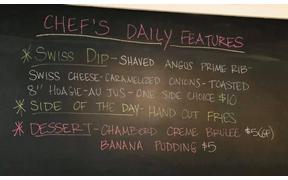 CHEF'S DAILY FEATURES
* SWISS DIP - SHAVED ANGUS PRIME RIB -
SWISS CHEESE - CARAMELIZED ONIONS - TOASTED
8" HOAGIE - AU JUS - ONE SIDE CHOICE $10
* SIDE OF THE DAY - HAND CUT FRIES
* DESSERT - CHAMBORD CREME BRULEE $5 (GF)
BANANA PUDDING $5